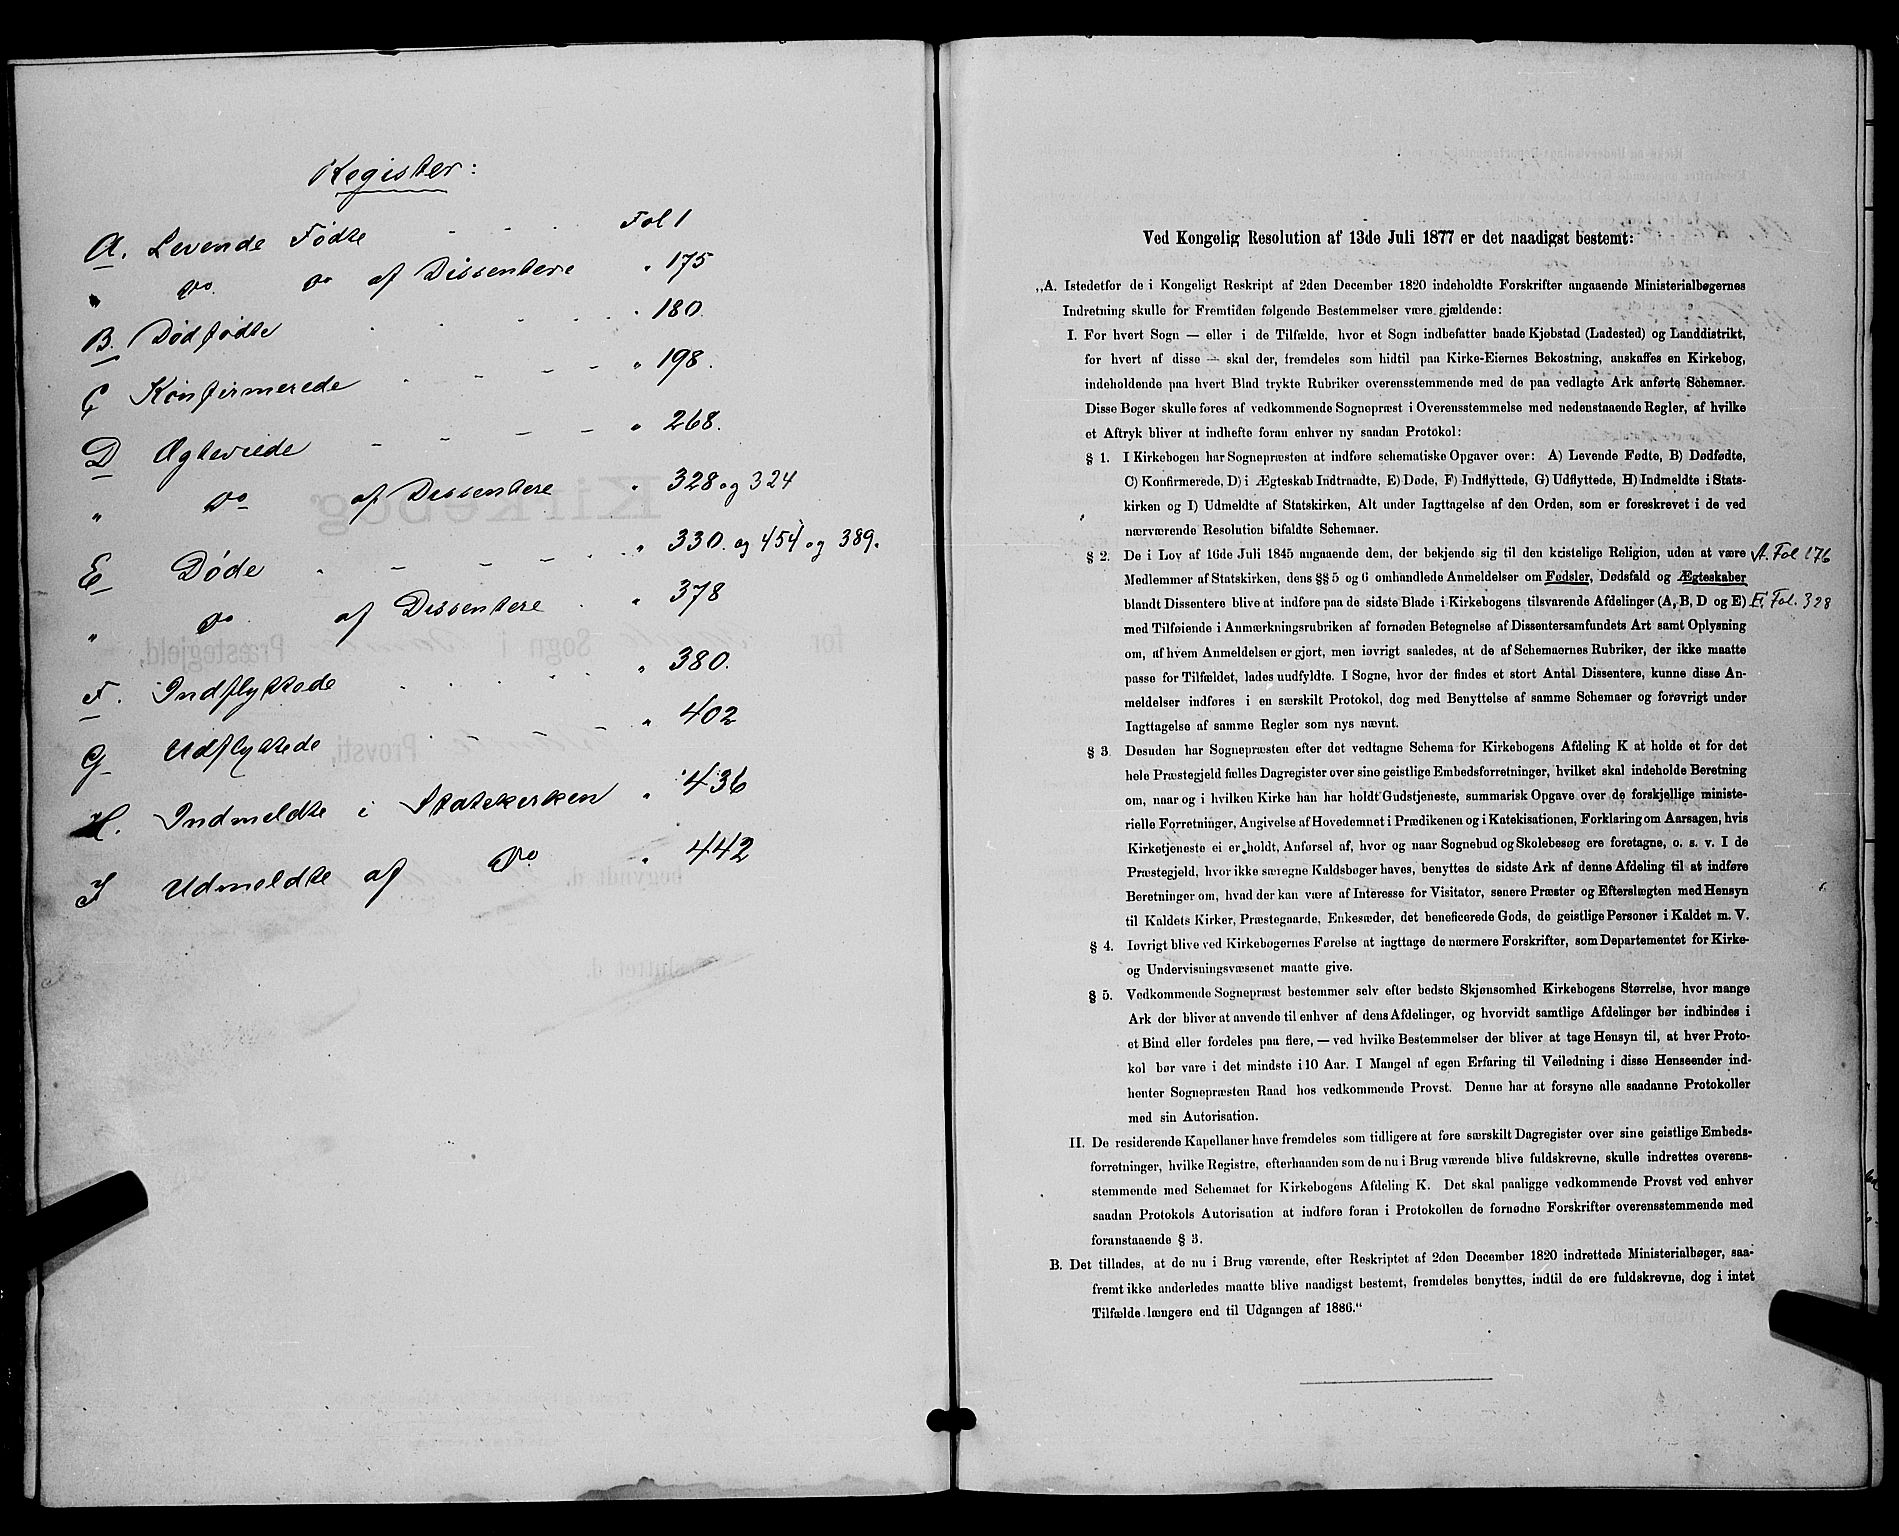 Register:
A. Levende Fødte - - . . Fol 1
" Do Do af Dissentere " 175
B. Dødfødte . . . . . " 180.
C Konfirmerede . - - - - " 198.
D Ægteviede - - - - " 268.
" Do af Dissentere " 328 og 324
E Døde . - - - . . " 330. og 454 og 389.
" Do af Dissentere . " 378
F. Indflyttede . . . . . " 380.
G Udflyttede . " 402
H. Indmeldte i Statskirken " 436
I Udmeldte af Do " 442
Ved Kongelig Resolution af 13de Juli 1877 er det naadigst bestemt:
„A. Istedetfor de i Kongeligt Reskript af 2den December 1820 indeholdte Forskrifter angaaende Ministerialbøgernes
Indretning skulle for Fremtiden følgende Bestemmelser være gjældende:
I. For hvert Sogn — eller i de Tilfælde, hvor et Sogn indbefatter baade Kjøbstad (Ladested) og Landdistrikt,
for hvert af disse — skal der, fremdeles som hidtil paa Kirke-Eiernes Bekostning, anskaffes en Kirkebog,
indeholdende paa hvert Blad trykte Rubriker overensstemmende med de paa vedlagte Ark anførte Schemaer.
Disse Bøger skulle føres af vedkommende Sognepræst i Overensstemmelse med nedenstaaende Regler, af hvilke
et Aftryk bliver at indhefte foran enhver ny saadan Protokol:
§ 1. I Kirkebogen har Sognepræsten at indføre schematiske Opgaver over: A) Levende Fødte, B) Dødfødte,
C) Konfirmerede, D) i Ægteskab Indtraadte, E) Døde, F) Indflyttede, G) Udflyttede, H) Indmeldte i Stats-
kirken og I) Udmeldte af Statskirken, Alt under Iagttagelse af den Orden, som er foreskrevet i de ved
nærværende Resolution bifaldte Schemaer.
§ 2. De i Lov af 16de Juli 1845 angaaende dem, der bekjende sig til den kristelige Religion, uden at være A. Fol 176
Medlemmer af Statskirken, dens §§ 5 og 6 omhandlede Anmeldelser om Fødsler, Dødsfald og Ægteskaber
blandt Dissentere blive at indføre paa de sidste Blade i Kirkebogens tilsvarende Afdelinger (A, B, D og E) E. Fol. 328
med Tilføiende i Anmærkningsrubriken af fornøden Betegnelse af Dissentersamfundets Art samt Oplysning
om, af hvem Anmeldelsen er gjort, men iøvrigt saaledes, at de af Schemaernes Rubriker, der ikke maatte
passe for Tilfældet, lades uudfyldte. I Sogne, hvor der findes et stort Antal Dissentere, kunne disse An-
meldelser indføres i en særskilt Protokol, dog med Benyttelse af samme Schemaer og forøvrigt under
Iagttagelse af samme Regler som nys nævnt.
§ 3. Desuden har Sognepræsten efter det vedtagne Schema for Kirkebogens Afdeling K at holde et for det
hele Præstegjeld fælles Dagregister over sine geistlige Embedsforretninger, hvilket skal indeholde Beretning
om, naar og i hvilken Kirke han har holdt Gudstjeneste, summarisk Opgave over de forskjellige ministe-
rielle Forretninger, Angivelse af Hovedemnet i Prædikenen og i Katekisationen, Forklaring om Aarsagen, hvis
Kirketjeneste ei er holdt, Anførsel af, hvor og naar Sognebud og Skolebesøg ere foretagne, o. s. v. I de
Præstegjeld, hvor ikke særegne Kaldsbøger haves, benyttes de sidste Ark af denne Afdeling til at indføre
Beretninger om, hvad der kan være af Interesse for Visitator, senere Præster og Efterslægten med Hensyn
til Kaldets Kirker, Præstegaarde, Enkesæder, det beneficerede Gods, de geistlige Personer i Kaldet m. V.
§ 4. Iøvrigt blive ved Kirkebøgernes Førelse at iagttage de nærmere Forskrifter, som Departementet for Kirke-
og Undervisningsvæsenet maatte give.
§ 5. Vedkommende Sognepræst bestemmer selv efter bedste Skjønsomhed Kirkebogens Størrelse, hvor mange
Ark der bliver at anvende til enhver af dens Afdelinger, og hvorvidt samtlige Afdelinger bør indbindes i
et Bind eller fordeles paa flere, — ved hvilke Bestemmelser der bliver at tage Hensyn til, at hver Proto-
kol bør vare i det mindste i 10 Aar. I Mangel af egen Erfaring til Veiledning i disse Henseender ind-
henter Sognepræsten Raad hos vedkommende Provst. Denne har at forsyne alle saadanne Protokoller
med sin Autorisation.
II. De residerende Kapellaner have fremdeles som tidligere at føre særskilt Dagregister over sine geistlige Embeds-
forretninger, hvilke Registre, efterhaanden som de nu i Brug værende blive fuldskrevne, skulle indrettes overens-
stemmende med Schemaet for Kirkebogens Afdeling K. Det skal paaligge vedkommende Provst ved enhver
saadan Protokols Autorisation at indføre foran i Protokollen de fornødne Forskrifter overensstemmende med
foranstaaende § 3.
B. Det tillades, at de nu i Brug værende, efter Reskriptet af 2den December 1820 indrettede Ministerialbøger, saa-
fremt ikke anderledes maatte blive naadigst bestemt, fremdeles benyttes, indtil de ere fuldskrevne, dog i intet
Tilfælde længere end til Udgangen af 1886.“